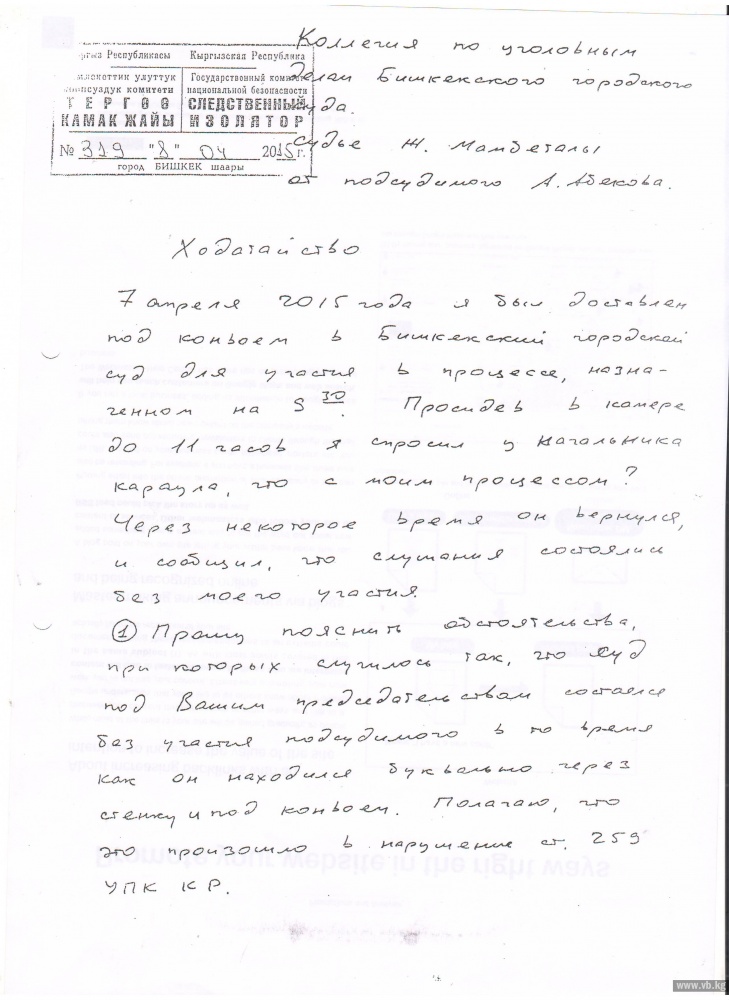 Коллегия по уголовным
делам Бишкекского городского
суда.
судье Ж. Мамбеталы
от подсудимого А. Абекова.
Кыргыз Республикасы
Мамлекеттик улуттук
коопсуздук комитети
ТЕРГӨӨ
КАМАК ЖАЙЫ
Кыргызская Республика
Государственный комитет
национальной безопасности
СЛЕДСТВЕННЫЙ
ИЗОЛЯТОР
№ 319 "8" 04 2015 г.
город БИШКЕК шаары
Ходатайство
7 апреля 2015 года я был доставлен
под конвоем в Бишкекский городской
суд для участия в процессе, назна-
ченном на 9 30. Просидев в камере
до 11 часов я спросил у начальника
караула, что с моим процессом?
Через некоторое время он вернулся,
и сообщил, что слушания состоялись
без моего участия.
① Прошу пояснить обстоятельства,
при которых случилось так, что суд
под Вашим председательством состоялся
без участия подсудимого в то время
как он находился буквально через
стенку и под конвоем. Полагаю, что
это произошло в нарушение ст. 259
УПК КР.
Promote your website in the right ways
www.vb.kg